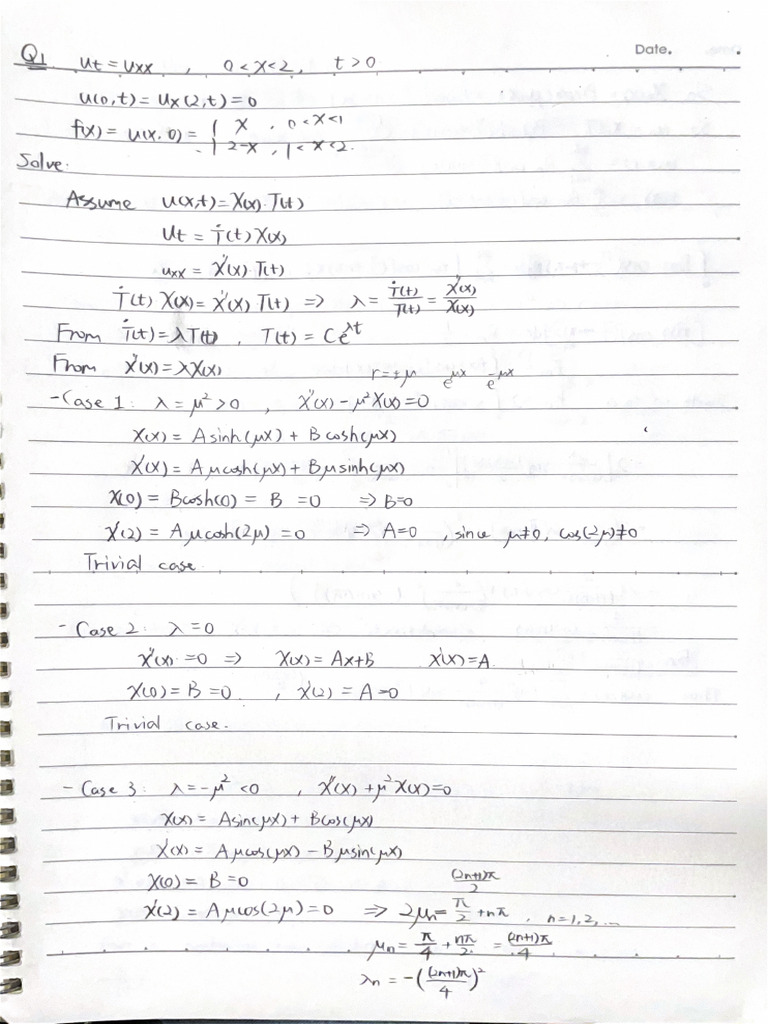 Date.
Q1 ut = uxx , 0 < x < 2, t > 0
u(0,t) = ux(2,t) = 0
f(x) = u(x,0) = { x , 0 < x < 1
2-x , 1 < x < 2.
Solve.
Assume u(x,t) = X(x)·T(t)
Ut = Ṫ(t) X(x)
uxx = X''(x) T(t)
Ṫ(t) X(x) = X''(x) T(t) => λ = Ṫ(t)/T(t) = X''(x)/X(x)
From Ṫ(t) = λT(t) , T(t) = Ce^λt
From X''(x) = λX(x)
r = ±μ e^μx e^-μx
- Case 1: λ = μ² > 0 , X''(x) - μ²X(x) = 0
X(x) = A sinh(μx) + B cosh(μx)
X'(x) = Aμ cosh(μx) + Bμ sinh(μx)
X(0) = B cosh(0) = B = 0 => B=0
X'(2) = Aμ cosh(2μ) = 0 => A=0 , since μ≠0, cos(2μ)≠0
Trivial case
- Case 2: λ = 0
X''(x) = 0 => X(x) = Ax+B X'(x) = A
X(0) = B = 0 , X'(2) = A = 0
Trivial case.
- Case 3: λ = -μ² < 0 , X''(x) + μ²X(x) = 0
X(x) = A sin(μx) + B cos(μx)
X'(x) = Aμ cos(μx) - Bμ sin(μx)
X(0) = B = 0 (2n+1)π/2
X'(2) = Aμ cos(2μ) = 0 => 2μn = π/2 + nπ , n=1,2,...
μn = π/4 + nπ/2 = (2n+1)π/4
λn = -((2n+1)π/4)²